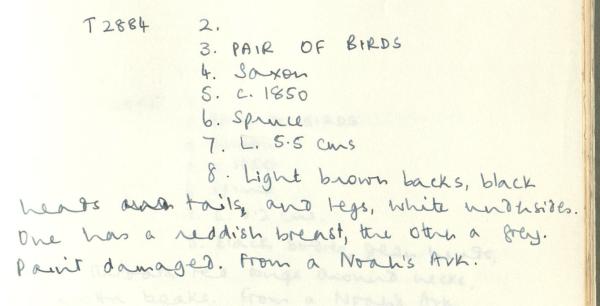 T 2884 2.
3. PAIR OF BIRDS
4. Saxon
5. c. 1850
6. Spruce
7. L. 5.5 cms
8. Light brown backs, black
heads tails, and legs, white undersides.
One has a reddish breast, the other a grey.
Paint damaged. From a Noah's Ark.